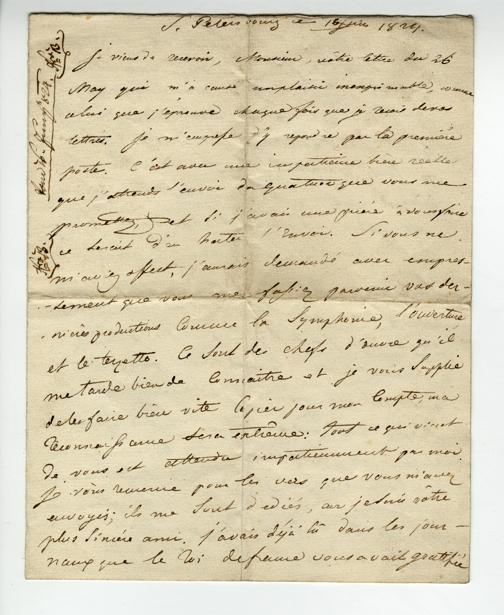 S. Petersbourg ce 16 juin 1824.
Je viens de recevoir, Monsieur, votre lettre du 26
May qui m'a causé un plaisir inexprimable, comme
celui que j'éprouve chaque fois que je recois de vos
lettres. Je m'empresse d'y repondre par la première
poste. C'est avec une impatience bien réelle
que j'attends l'envoi du quatuor que vous me
promettez, et si j'avais une prière à vous faire
ce serait d'en hater l'Envoi. Si vous ne
m'aviez offert, j'aurais demandé avec empres-
-sement que vous me fassiez parvenir vos der-
-nières productions comme la Symphonie, l'ouverture
et le terzetto. Ce sont des chefs d'œuvre qu'il
me tarde bien de Connaître et je vous Supplie
de les faire bien vite Copier pour mon Compte, ma
reconnaissance sera extrême: tout ce qui vient
de vous est attendu impatiemment par moi
je vous remercie pour les vers que vous m'avez
envoyés; ils me sont dediés, car je suis votre
plus sincère ami. J'avais déjà lû dans les jour-
naux que le Roi de france vous avait gratifié